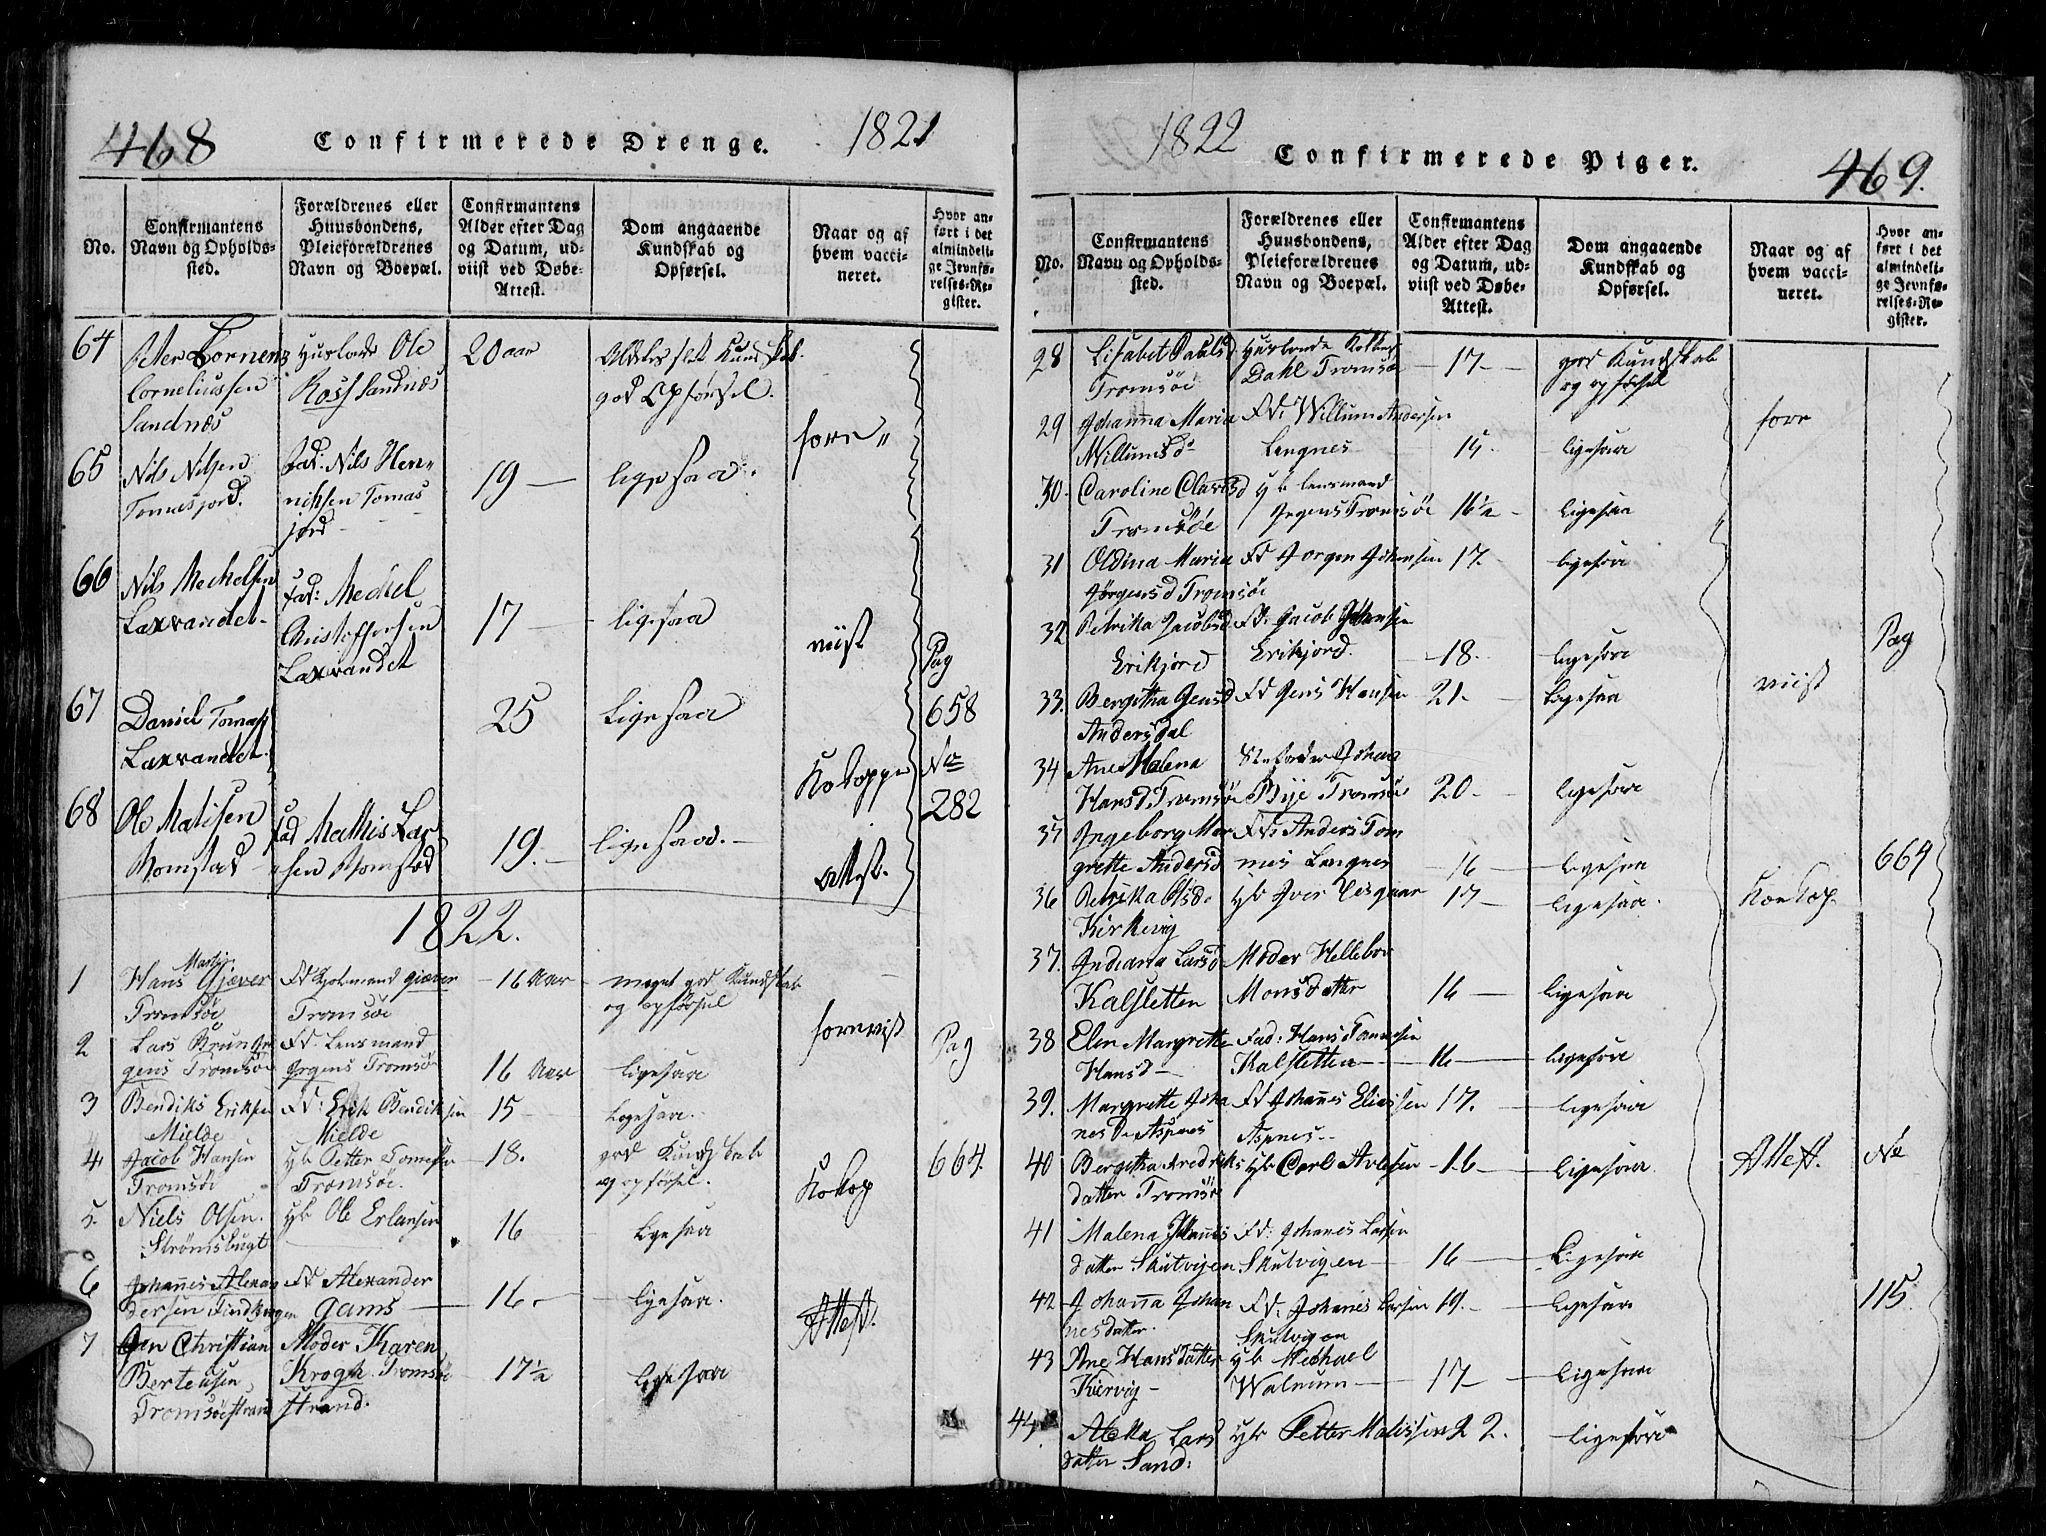 468
Confirmerede Drenge.
1821
No.
Confirmantens Navn og Opholds-sted.
Forældrenes eller Huusbondens, Pleieforældrenes Navn og Boepæl.
Confirmantens Alder efter Dag og Datum, ud-viist ved Døbe-Attest.
Dom angaaende Kundskab og Opførsel.
Naar og af hvem vacci-neret.
Hvor an-ført i det almindeli-ge Jevnfø-relses-Re-gister.
64
Cornelliussen
Sandnæs
Huusbonde Ole
Ross Sandnæs
20 aar
god Opførsel.
65
Nils Nilsen
Tomasjord.
Fad: Nils Hen-
richsen Tomas
jord
19
ligesaa
fore
66
Nils Mechelsen
Laxvandet
Fad: Mechel
Christoffersen
Laxvandet
17
ligesaa
viist
Pag
67
Daniel Tomass
Laxvandet
25
Ligesaa
658
68
Ole Matisen
Fad Mathis Lar
sen
19.
ligesaa
Kokoppe
No
282
Attest.
1822.
1
Hans Martin Gjæver
Tromsöe
Fd Kjøbmand Giæver
Tromsöe
16 Aar
meget god Kundskab
og opførsel
foreviist
2
Lars Brun Jr
gens Tromsöe
Fd Lensmand
Jrgens Tromsöe
16 Aar
ligesaa
Pag
3
Bendiks Eriksen
Mielde
Fd: Erik Bendiksen
Mielde
15
Ligesaa
4
Jacob Hansen
Tromsöe
Hb Petter Tomesen
Tromsöe.
18.
god Kundskab
og opförsel.
Kokop
664.
5.
Niels Olsen.
Strømsbugt
Hb Ole Erlansen
16
Ligesaa
6
Johannes Alexan
dersen
Fd Alexander
Gams
16
ligesaa.
Attest.
7
Jen Christian
Berteusen
Tromsöestrand
Moder Karen
Krogh Tromsöe
strand.
17½
ligesaa
1822
Confirmerede Piger.
469.
No.
Confirmantens Navn og Opholds-sted.
Forældrenes eller Huusbondens, Pleieforældrenes Navn og Boepæl.
Confirmantens Alder efter Dag og Datum, ud-viist ved Døbe-Attest.
Dom angaaende Kundskab og Opførsel.
Naar og af hvem vacci-neret.
Hvor an-ført i det almindeli-ge Jevnfø-relses-Re-gister.
28
Lisabet Pauls d
Tromsöe
Huusbonde
Dahl Tromsöe
17
god Kundskab
og opførsel
29
Johanna Maria
Willumsd
Fd. Willum Andersen
Langnes
15
ligesaa
fore
30.
Caroline Clausd
Tromsöe
Hb lensmand
Jrgens Tromsöe
16½
Ligesaa
31
Oldina Maria
Jörgensd Tromsöe
Fd Jorgen Johansen
17.
ligesaa
32
Petrika Jacobsd
Erikjord
Fd. Jacob Johansen
Erikjord.
18.
ligesaa
Pag
33.
Bergitha Jensd
Andersdal
Fd Jens Hansen
21.
Ligesaa
viist
34
Ane Malena
Hansd. Tromsöe
Stefader Johan
Bye Tromsöe
20
ligesaa
35
Ingeborg Mar
grette Andersd
Fd: Anders Tom
mes Langnes
16
ligesaa
664
36
Petrika Olsd.
Kirkevig
Hb Iver
17
Ligesaa.
Koekop
37.
Indiana Larsd
Kalsletten
Moder Hellebor
Monsdatter
16
Ligesaa
38
Elen Margrette
Hansd
Fad: Hans Tommesen
Kalsletten
16
ligesaa
39.
Margrette Joha
nesd. Aspnes
Fd Johannes Eliassen
Aspnes
17.
ligesaa
40
Bergitha Fredriks
datter Tromsöe
Hb Carl
16
Ligesaa
Attest.
No
41
Malena Johannes
datter Skulvigen
Fd: Johanes Larsen
Skulvigen
16
Ligesaa
42
Johanna Johan
nesdatter.
Fd. Johanes Larsen
Skulvigen
19.
Ligesaa
115
43
Ane Hansdatter
Kiervig
Hb Mechael
Walnum
17
Ligesaa
44.
Aletta Lars
datter Sand:
Hb Petter Matissen
22.
Ligesaa